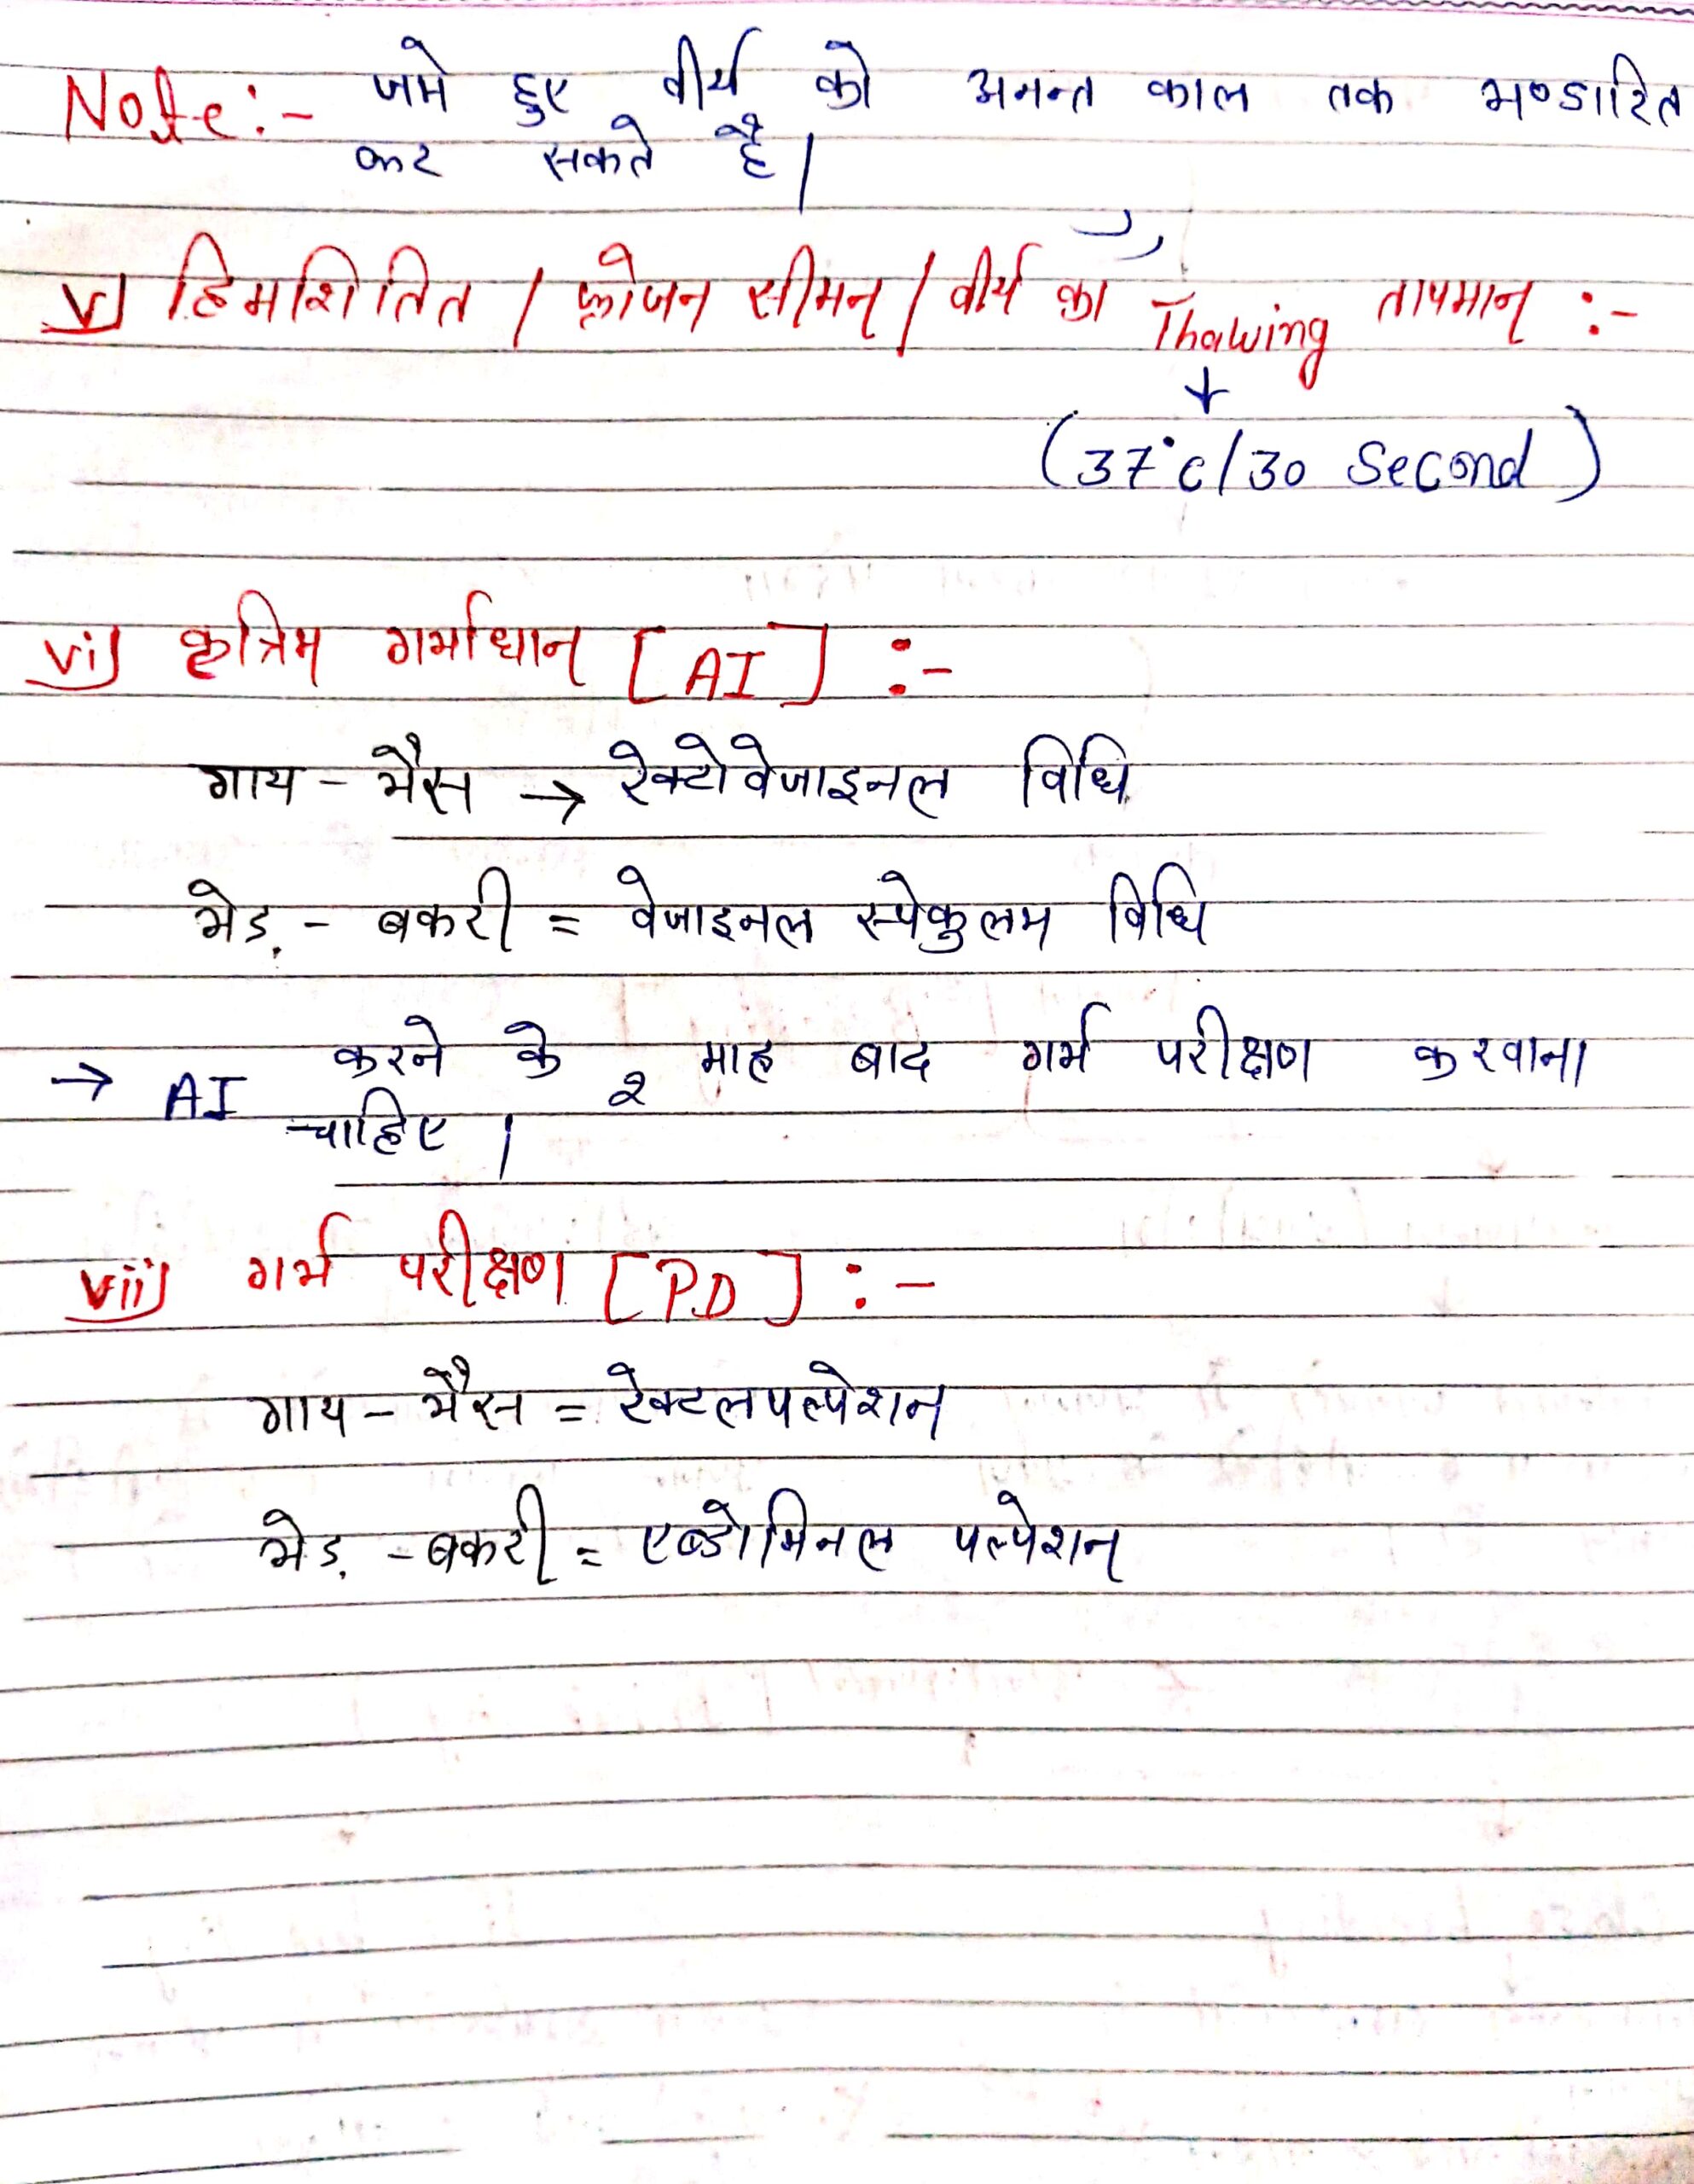 Note:- जमे हुए वीर्य को अनन्त काल तक भण्डारित
कर सकते है।
v) हिमशितित / फ्रोजन सीमन / वीर्य का Thawing तापमान :-
(37°c/30 Second)
vi) कृत्रिम गर्भाधान [AI] :-
गाय - भैंस → रेक्टोवेजाइनल विधि
भेड़ - बकरी = वेजाइनल स्पेकुलम विधि
→ AI करने के 2 माह बाद गर्भ परीक्षण करवाना
चाहिए।
vii) गर्भ परीक्षण [P.D] :-
गाय - भैंस = रेक्टलपल्पेशन
भेड़ - बकरी = एब्डोमिनल पल्पेशन